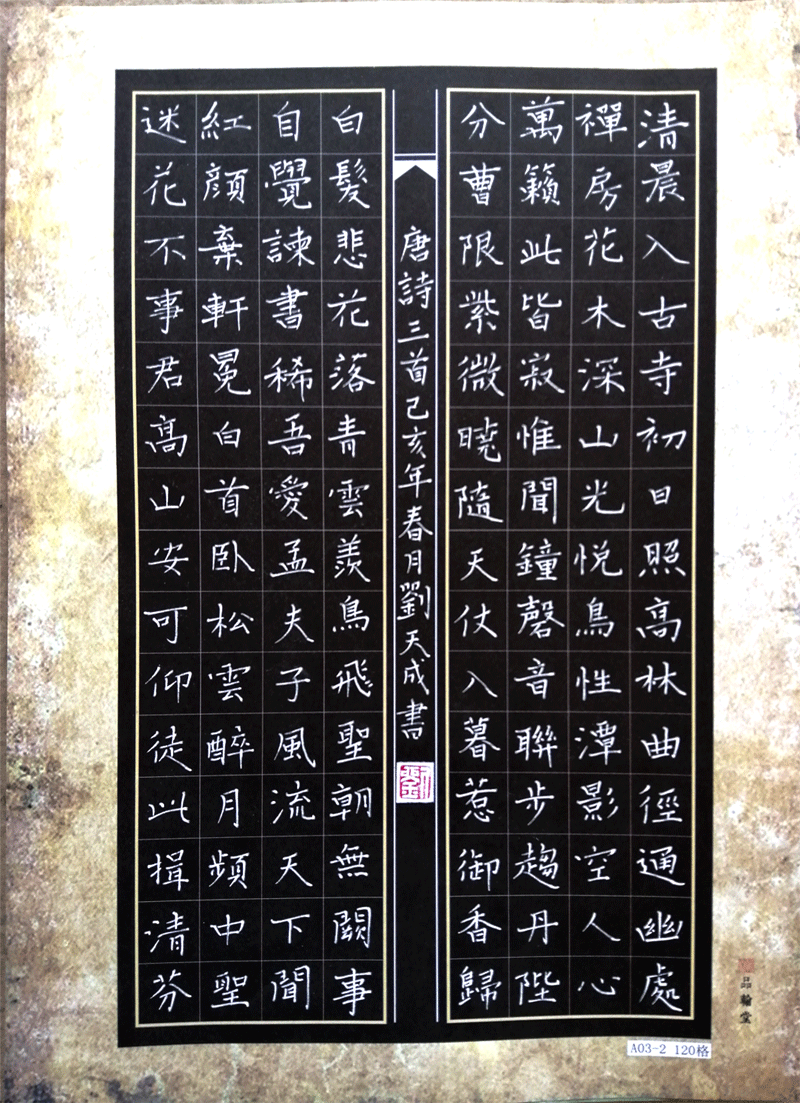 清晨入古寺初日照髙林曲徑通幽處
禪房花木深山光悦鳥性潭影空人心
萬籟此皆寂惟聞鐘磬音聯步趨丹陛
分曹限紫微曉隨天仗入暮惹御香歸
唐詩三首己亥年春月劉天成書
白髮悲花落青雲羨鳥飛聖朝無闕事
自覺諫書稀吾愛孟夫子風流天下聞
紅顔棄軒冕白首卧松雲醉月頻中聖
迷花不事君髙山安可仰徒此揖清芬
翰堂
A03-2 120格